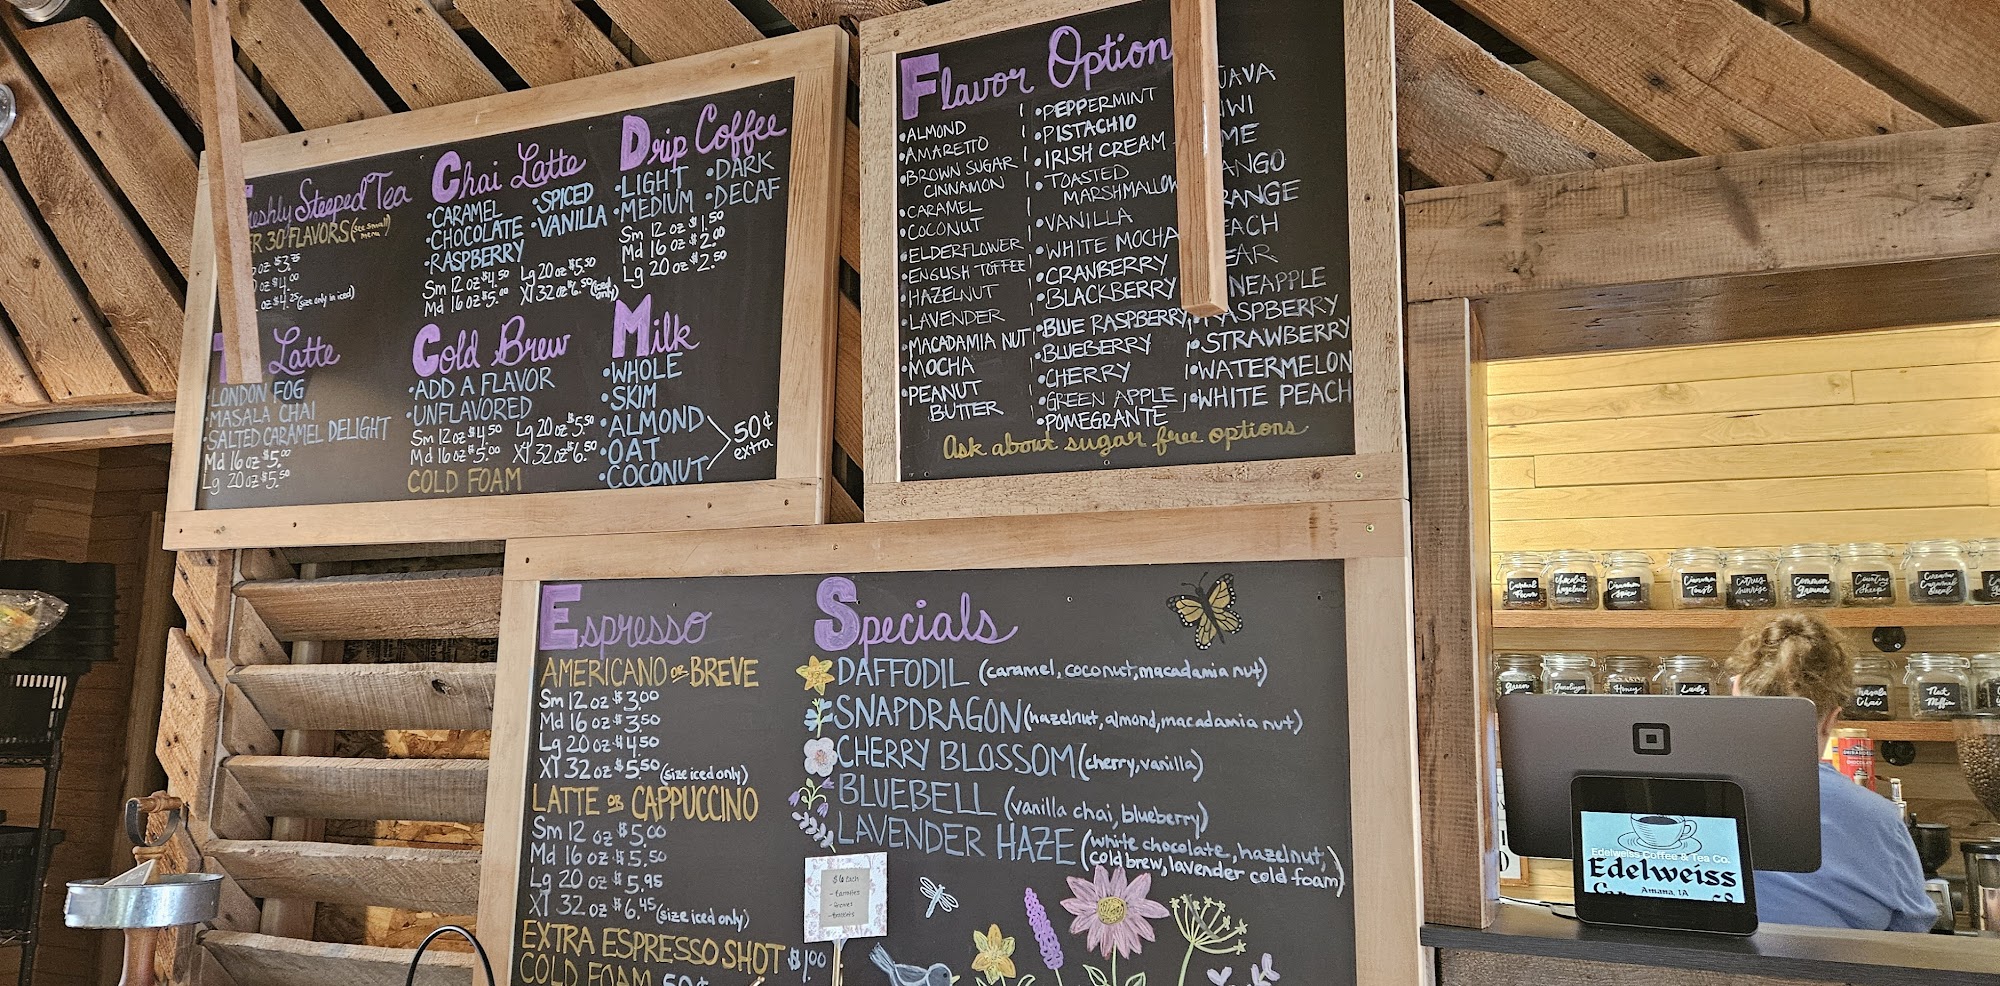 Freshly Steeped Tea
ER 30 FLAVORS (see small menu)
oz $3.75
oz $4.00
oz $4.25 (size only in iced)
Chai Latte
•CARAMEL •SPICED
•CHOCOLATE •VANILLA
•RASPBERRY
Sm 12 oz $4.50 Lg 20 oz $5.50
Md 16 oz $5.00 Xl 32 oz $6.50 (iced only)
Drip Coffee
•LIGHT •DARK
•MEDIUM •DECAF
Sm 12 oz $1.50
Md 16 oz $2.00
Lg 20 oz $2.50
T Latte
•LONDON FOG
•MASALA CHAI
•SALTED CARAMEL DELIGHT
Md 16 oz $5.00
Lg 20 oz $5.50
Cold Brew
•ADD A FLAVOR
•UNFLAVORED
Sm 12 oz $4.50 Lg 20 oz $5.50
Md 16 oz $5.00 Xl 32 oz $6.50
COLD FOAM
Milk
•WHOLE
•SKIM
•ALMOND
•OAT
•COCONUT
50¢
extra
Flavor Option
•ALMOND
•AMARETTO
•BROWN SUGAR
CINNAMON
•CARAMEL
•COCONUT
•ELDERFLOWER
•ENGLISH TOFFEE
•HAZELNUT
•LAVENDER
•MACADAMIA NUT
•MOCHA
•PEANUT
BUTTER
•PEPPERMINT
•PISTACHIO
•IRISH CREAM
•TOASTED
MARSHMALLOW
•VANILLA
•WHITE MOCHA
•CRANBERRY
•BLACKBERRY
•BLUE RASPBERRY
•BLUEBERRY
•CHERRY
•GREEN APPLE
•POMEGRANTE
JAVA
IWI
ME
ANGO
RANGE
EACH
EAR
NEAPPLE
RASPBERRY
•STRAWBERRY
•WATERMELON
•WHITE PEACH
Ask about sugar free options
Espresso
AMERICANO OR BREVE
Sm 12 oz $3.00
Md 16 oz $3.50
Lg 20 oz $4.50
Xl 32 oz $5.50 (size iced only)
LATTE OR CAPPUCCINO
Sm 12 oz $5.00
Md 16 oz $5.50
Lg 20 oz $5.95
Xl 32 oz $6.45 (size iced only)
EXTRA ESPRESSO SHOT $1.00
COLD FOAM 50¢
Specials
DAFFODIL (caramel, coconut, macadamia nut)
SNAPDRAGON (hazelnut, almond, macadamia nut)
CHERRY BLOSSOM (cherry, vanilla)
BLUEBELL (vanilla chai, blueberry)
LAVENDER HAZE (white chocolate, hazelnut,
cold brew, lavender cold foam)
$6 each
Caramel Pecan
chocolate hazelnut
Cinnamon Spice
Cinnamon Toast
Citrus Sunrise
Common Grounds
Counting Sheep
Green
Honey
Lady
Masala Chai
Nut Muffin
Edelweiss Coffee & Tea Co.
Edelweiss
Amana, IA